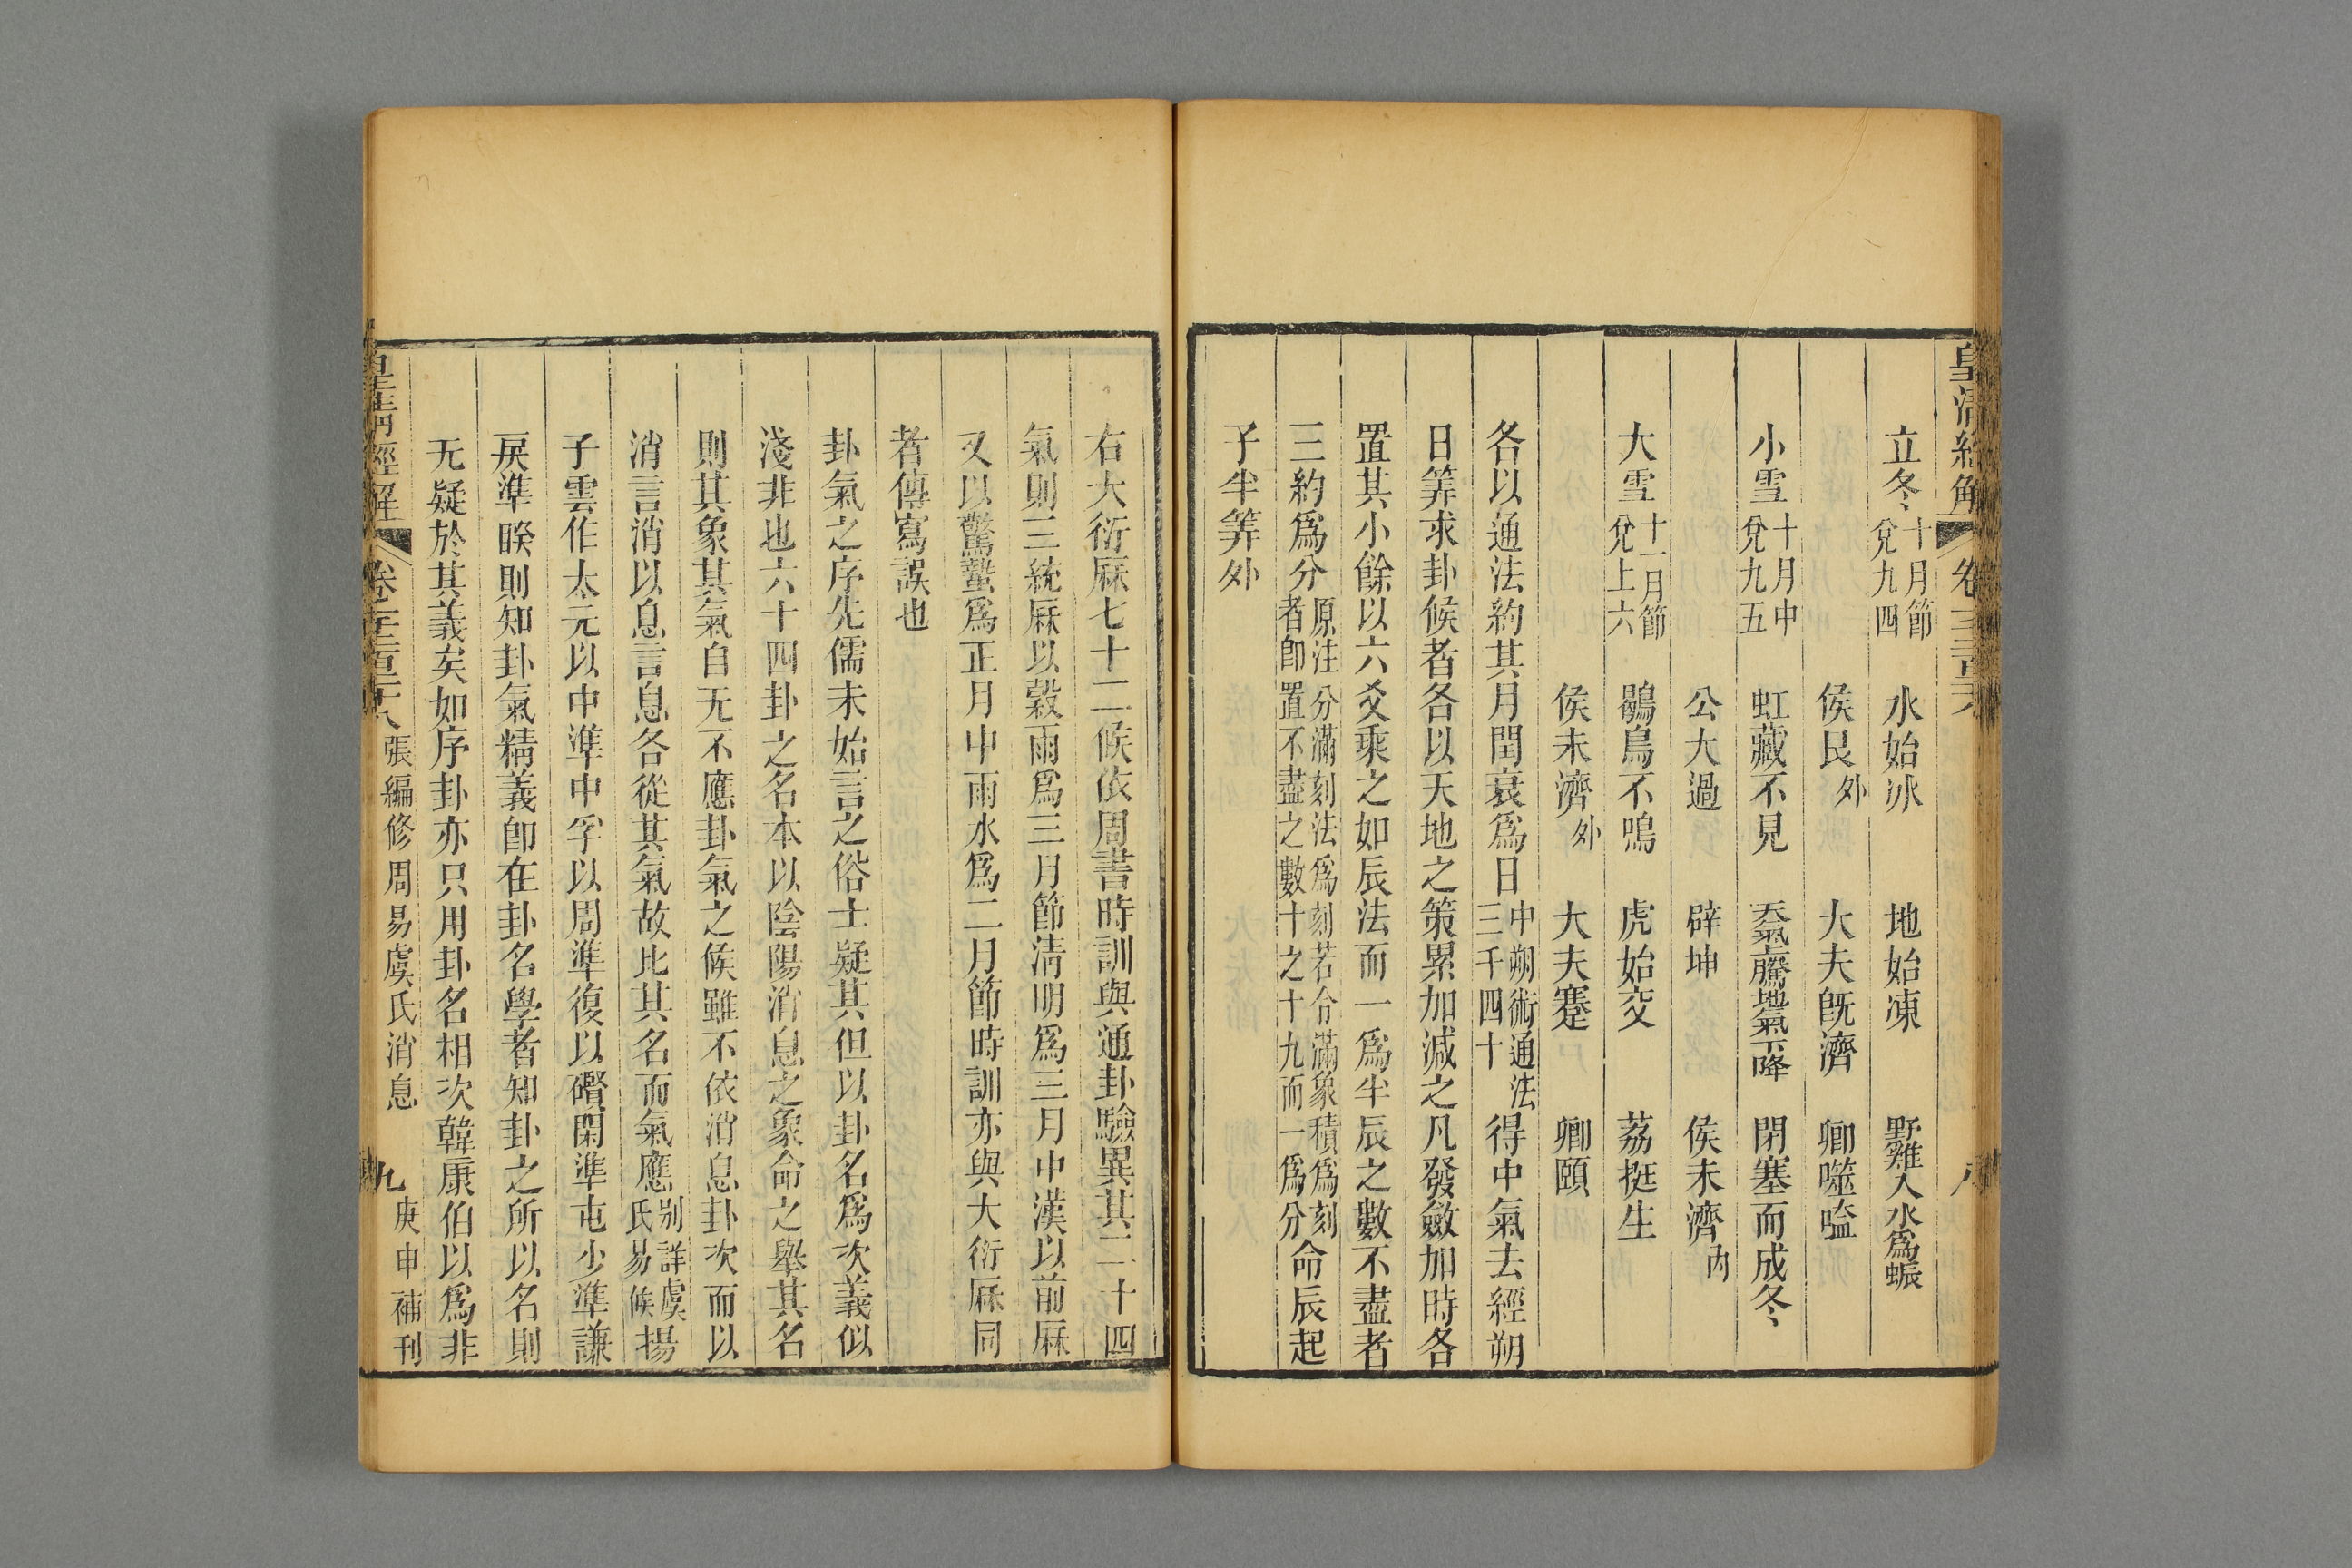 皇清經解 卷一千二百二十八 八
立冬十月節兌九四 水始冰 地始凍 野雞入水爲蜄
侯艮外 大夫旣濟 卿噬嗑
小雪十月中兌九五 虹藏不見 天氣上騰地氣下降 閉塞而成冬
公大過 辟坤 侯未濟內
大雪十一月節兌上六 鶡鳥不鳴 虎始交 荔挺生
侯未濟外 大夫蹇 卿頤
各以通法約其月閏衰爲日中朔術通法三千四十得中氣去經朔
日筭求卦候者各以天地之策累加減之凡發斂加時各
置其小餘以六爻乘之如辰法而一爲半辰之數不盡者
三約爲分原注分滿刻法爲刻若令滿象積爲刻者卽置不盡之數十之十九而一爲分命辰起
子半筭外
右大衍厤七十二候依周書時訓與通卦驗異其二十四
氣則三統厤以穀雨爲三月節淸明爲三月中漢以前厤
又以驚蟄爲正月中雨水爲二月節時訓亦與大衍厤同
者傳寫誤也
卦氣之序先儒未始言之俗士疑其但以卦名爲次義似
淺非也六十四卦之名本以陰陽消息之象命之舉其名
則其象其氣自无不應卦氣之候雖不依消息卦次而以
消言消以息言息各從其氣故比其名而氣應別詳虞氏易候揚
子雲作太元以中準中孚以周準復以礥閑準屯少準謙
戾準睽則知卦氣精義卽在卦名學者知卦之所以名則
无疑於其義矣如序卦亦只用卦名相次韓康伯以爲非
皇清經解 卷一千二百二十八 張編修周易虞氏消息 九 庚申補刊